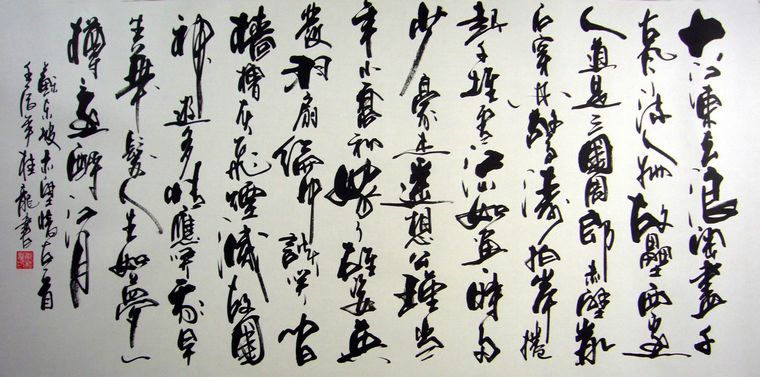 大江東去浪淘盡千
古風流人物故壘西邊
人道是三國周郎赤壁亂
石穿空驚濤拍岸捲
起千堆雪江山如畫時多
少豪杰遙想公瑾當
年小喬初嫁了雄姿英
發羽扇綸巾談笑間
檣櫓灰飛煙滅故國
神遊多情應笑我早
生華髮人生如夢一
樽還酹江月
東坡赤壁懷古一首
年桂龍書